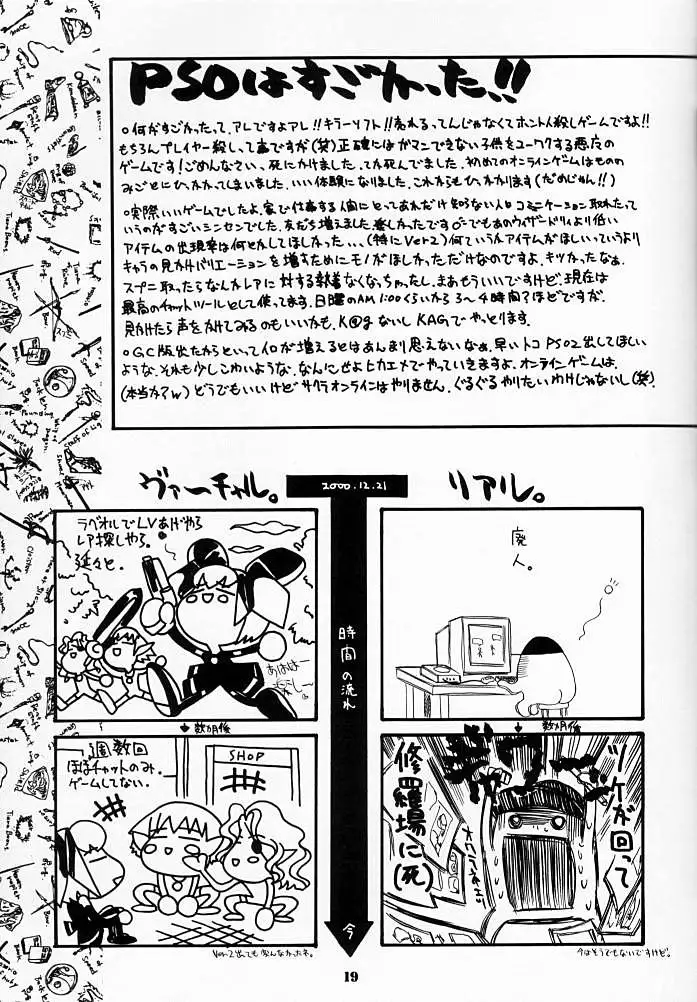 PSOはすごかった!!
○何がすごかったって、アレですよアレ!!キラーソフト!!売れるってんじゃなくてホント人殺しゲームですよ!!
もちろんプレイヤー殺しって事ですが(笑)正確にはガマンできない子供をユーワクする悪夜の
ゲームです!ごめんなさい、死にかけました。ってか死んでました。初めてのオンラインゲームはものの
みごとにひっかかってしまいました。いい体験になりました。これからもひっかかります(だめじゃん!!)
○実際いいゲームでしたよ。家で仕事する人間にとってあれだけ知らない人とコミュニケーション取れたって
いうのがすごいシンセンでした。友だち増えました。楽しかったです。でもあのウィザードリィより低い
アイテムの出現率は何とかしてほしかった...(特にVer2)何ていうかアイテムがほしいっていうより
キャラの見かけバリエーションを増すためにモノがほしかっただけなのですよ。キツかったなぁ。
スプニ取ったらなんかレアに対する執着なくなっちゃったし、まあもういいですけど。現在は
最高のチャットツールとして使ってます。日曜のAM1:00くらいから3〜4時間?ほどですが。
見かけたら声をかけてみるのもいいかも。K@gないしKAGでやっとります。
○GC版出たからといって人口が増えるとはあんまり思えないなぁ。早いトコPSO2出してほしい
ような、それも少しこわいような。なんにせよヒカエメでやっていきますよ、オンラインゲームは。
(本当かァw)どうでもいいけどサクラオンラインはやりません。ぐるぐるやりたいわけじゃないし(笑)
ヴァーチャル。
2000.12.21
リアル。
ラベオルでLVあげやら
レア探しやら。
延々と。
あはは
時間の流れ
廃人。
数ヵ月後
数ヵ月後
週数回
ほぼチャットのみ。
ゲームしてない。
SHOP
ツケが回って
修羅場に(死)
今
Ver2出ても変んなかったネ。
今はそうでもないですけど。
19